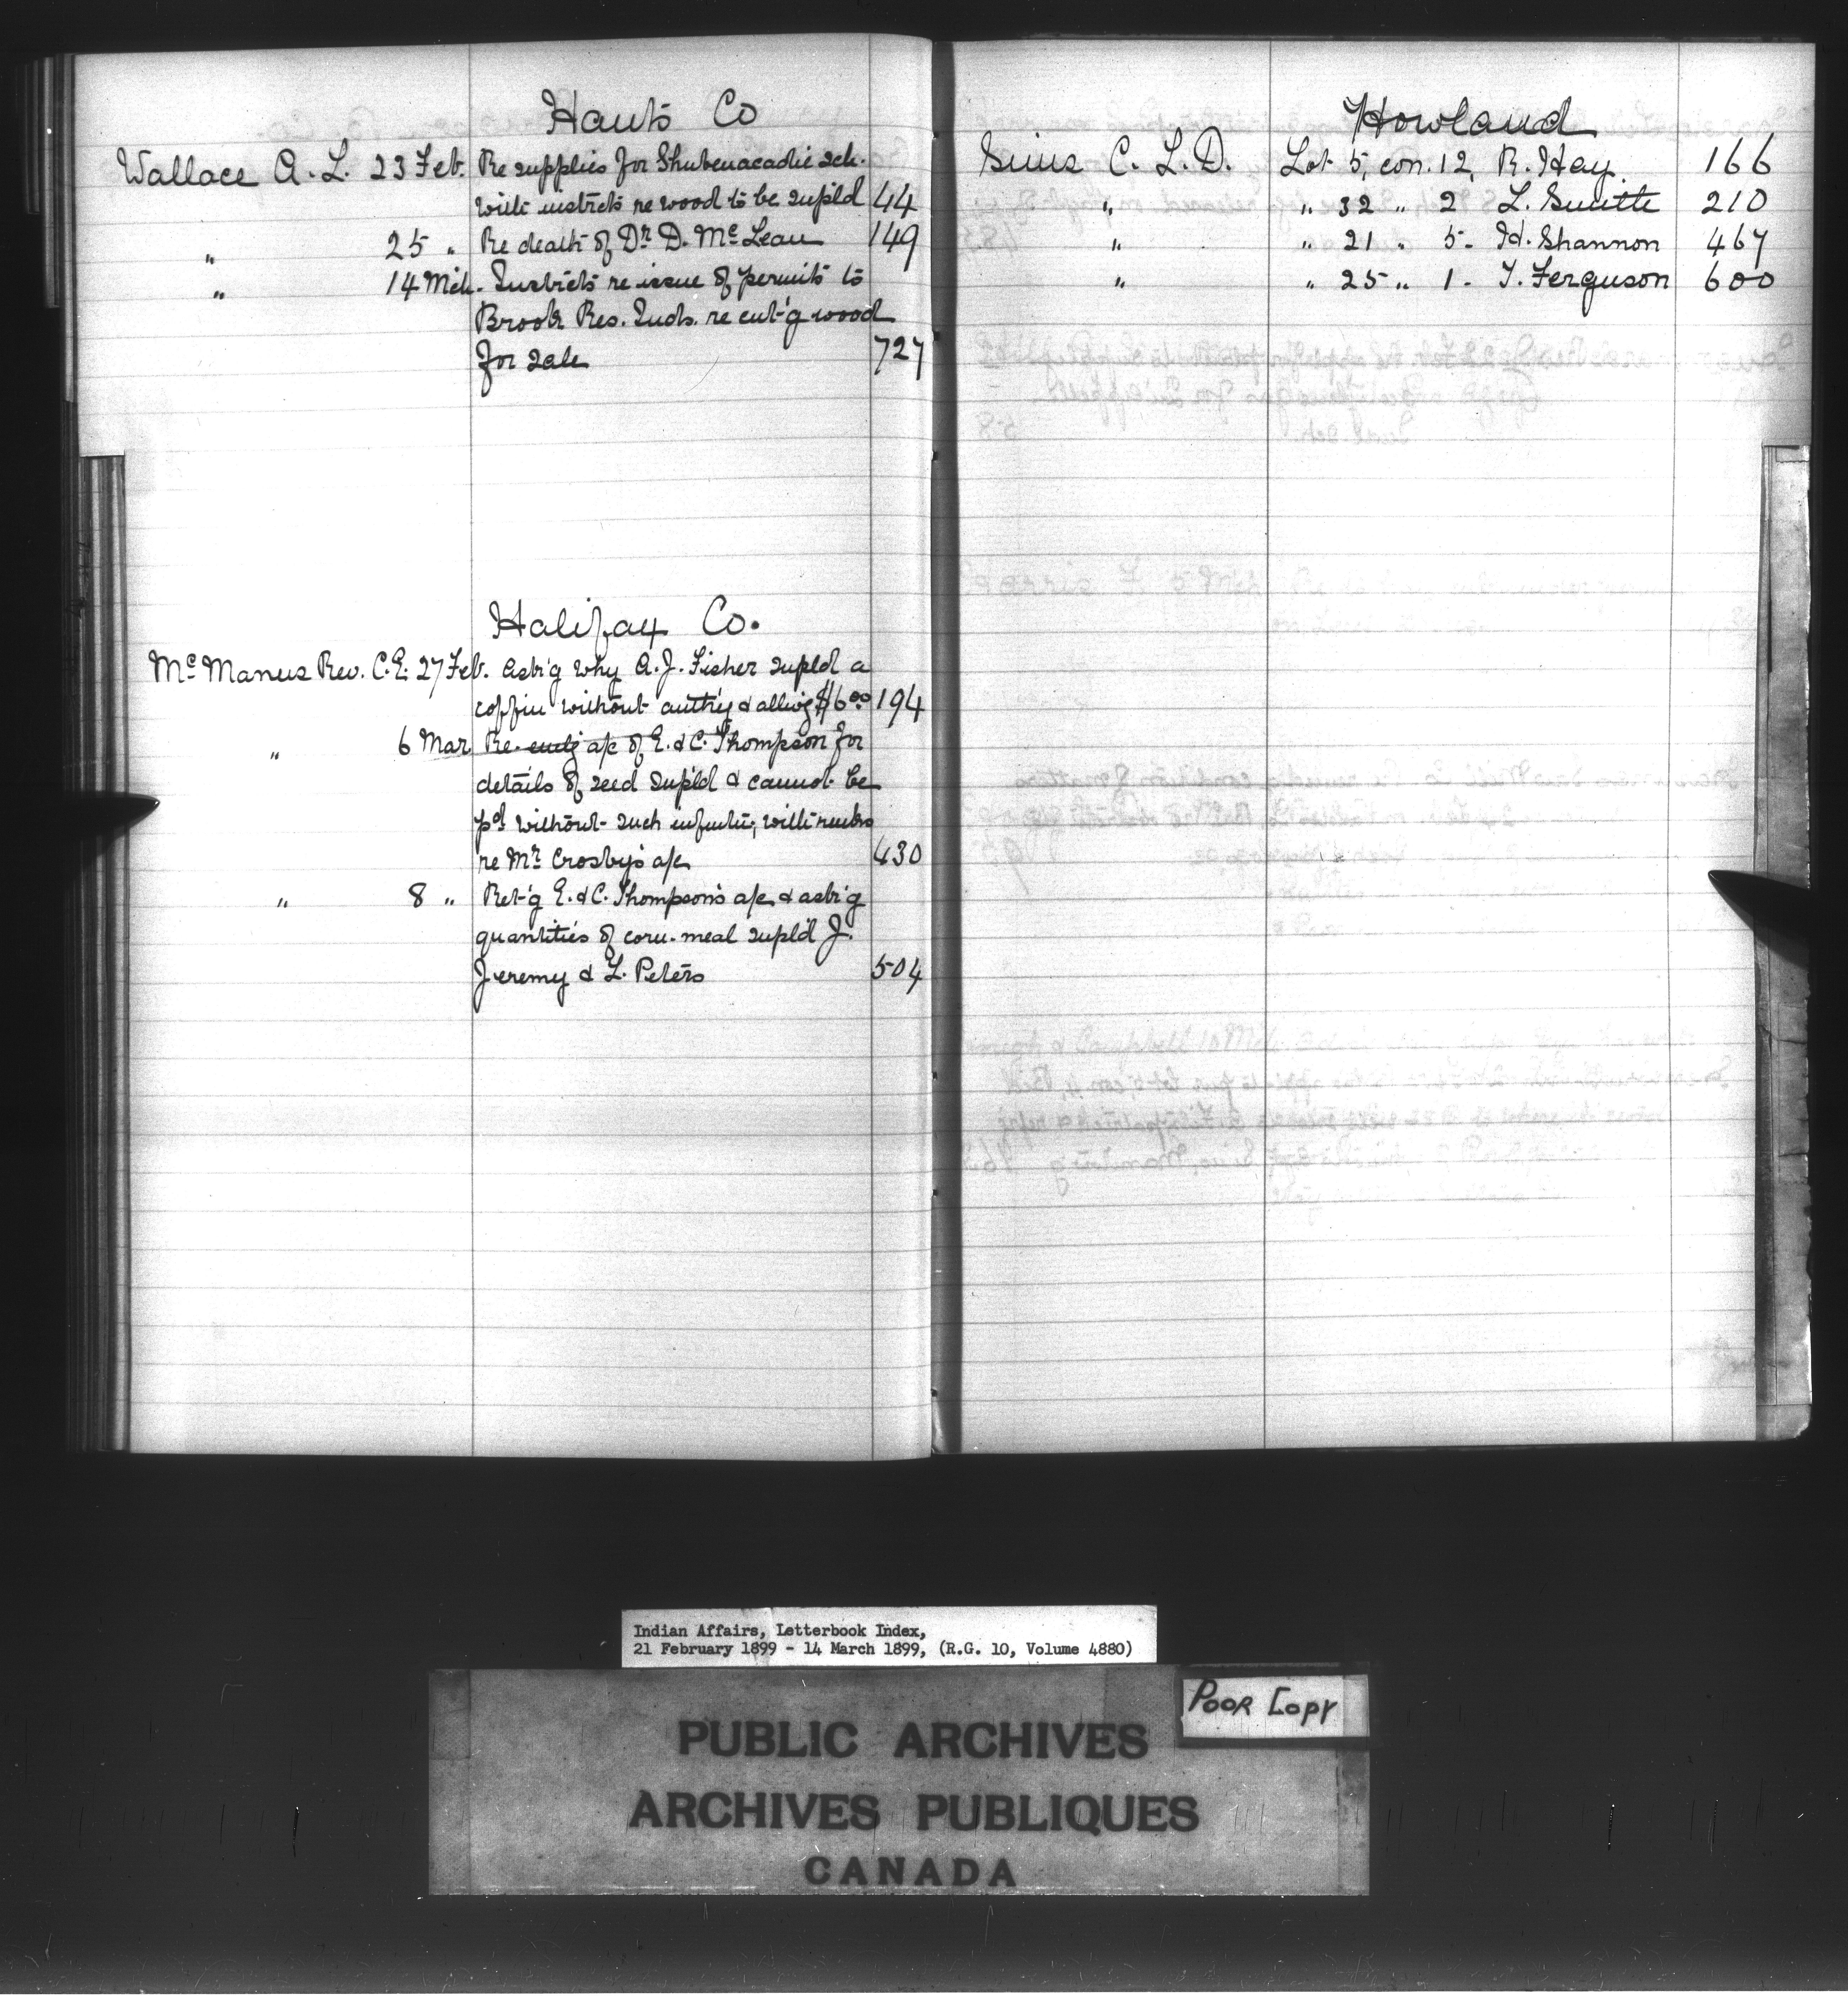 Hants Co
Wallace A. L. 23 Feb. Re supplies for Shubenacadie sch.
with instrcts re wood to be supld 44
" 25 " Re death of Dr D. McLean 149
" 14 Mch. Instrcts re issue of permits to
Brook Res. Inds. re cut'g wood
for sale 727
Halifax Co.
McManus Rev. C.E. 27 Feb. Ask'g why A. J. Fisher supld a
coffin without auth'y & allwg $6.00 194
" 6 Mar Re a/c of E. & C. Thompson for
details of seed supld & cannot be
pd without such infmtn, with remks
re Mr Crosby's a/c 430
" 8 " Ret'g E. & C. Thompson's a/c & ask'g
quantities of corn-meal supl'd J.
Jeremy & L. Peters 504
Howland
Sims C. L. D. Lot 5, con. 12, R. Hay. 166
" " 32 " 2 L. Smith 210
" " 21 " 5 - H. Shannon 467
" " 25 " 1 - T. Ferguson 600
Indian Affairs, Letterbook Index,
21 February 1899 - 14 March 1899, (R.G. 10, Volume 4880)
POOR COPY
PUBLIC ARCHIVES
ARCHIVES PUBLIQUES
CANADA